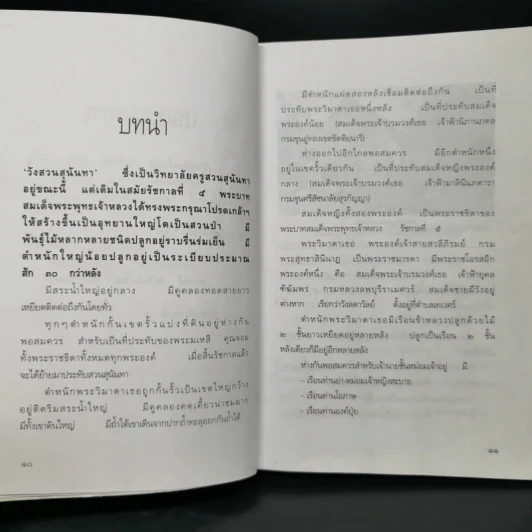 บทนำ
'วังสวนสุนันทา' ซึ่งเป็นวิทยาลัยครูสวนสุนันทา
อยู่ขณะนี้ แต่เดิมในสมัยรัชกาลที่ ๕ พระบาท
สมเด็จพระพุทธเจ้าหลวงได้ทรงพระกรุณาโปรดเกล้าฯ
ให้สร้างขึ้นเป็นอุทยานใหญ่โตเป็นสวนป่า มี
พันธุ์ไม้หลากหลายชนิดปลูกอยู่ราบรื่นร่มเย็น มี
ตำหนักใหญ่น้อยปลูกอยู่เป็นระเบียบประมาณ
สัก ๓๐ กว่าหลัง
มีสระน้ำใหญ่อยู่กลาง มีคูคลองทอดสายยาว
เหยียดติดต่อถึงกันโดยทั่ว
ทุกๆตำหนักกั้นเขตรั้วแบ่งที่ดินอยู่ห่างกัน
พอสมควร สำหรับเป็นที่ประทับของพระมเหสี คุณจอม
ทั้งพระราชธิดาทั้งหมดทุกพระองค์ เมื่อสิ้นรัชกาลแล้ว
จะได้ย้ายมาประทับสวนสุนันทา
ตำหนักพระวิมาดาเธอถูกกั้นรั้วเป็นเขตใหญ่กว้าง
อยู่ติดริมสระน้ำใหญ่ มีคูคลองคดเคี้ยวน่าชมมาก
มีทั้งเขาดินใหญ่ มีถ้ำใต้เขาเดินจากปากถ้ำทะลุออกกันถ้ำได้
๑๐
มีตำหนักแฝดสองหลังเชื่อมติดต่อถึงกัน เป็นที่
ประทับพระวิมาดาเธอหนึ่งหลัง เป็นที่ประทับสมเด็จ
พระองค์น้อย (สมเด็จพระเจ้าบรมวงศ์เธอ เจ้าฟ้านิภานภดล
กรมขุนอู่ทองเขตขัตติยนารี)
ห่างออกไปอีกไกลพอสมควร มีอีกตำหนักหนึ่ง
อยู่ในเขตรั้วเดียวกัน เป็นที่ประทับสมเด็จหญิงพระองค์
กลาง (สมเด็จพระเจ้าบรมวงศ์เธอ เจ้าฟ้ามาลินีนภดารา
กรมขุนศรีสัชนาลัยสุรกัญญา)
สมเด็จหญิงทั้งสองพระองค์ เป็นพระราชธิดาของ
พระบาทสมเด็จพระพุทธเจ้าหลวง รัชกาลที่ ๕
พระวิมาดาเธอ พระองค์เจ้าสายสวลีภิรมย์ กรม
พระสุทธาสินีนาฏ เป็นพระราชมารดา มีพระราชโอรสอีก
พระองค์หนึ่ง คือ สมเด็จพระเจ้าบรมวงศ์เธอ เจ้าฟ้ายุคล
ฑิฆัมพร กรมหลวงลพบุรีราเมศวร์ สมเด็จชายมีวังอยู่
ต่างหาก เรียกว่าวังลดาวัลย์ ตั้งอยู่ที่ตำบลเทเวศร์
ตำหนักพระวิมาดาเธอมีเรือนข้าหลวงปลูกด้วยไม้
๒ ชั้นยาวเหยียดอยู่หลายหลัง ปลูกเป็นเรือน ๒ ชั้น
หลังเดียวก็มีอยู่อีกหลายหลัง
ห่างกันพอสมควรสำหรับเจ้านายชั้นหม่อมเจ้าอยู่ มี
- เรือนท่านย่า-หม่อมเจ้าหญิงสะบาย
- เรือนท่านโอภาษ
- เรือนท่านองค์ปุ๋ย
๑๑